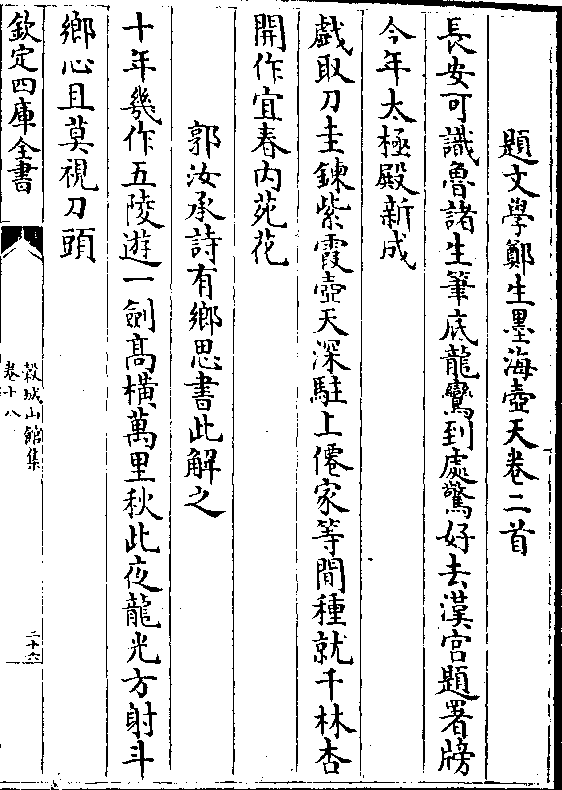 題文學鄭生墨海壺天卷二首
長安可識魯諸生筆底龍鸞到處驚好去漢宮題署牓
今年太極殿新成
戲取刀圭鍊紫霞壺天深駐上僊家等閒種就千林杏
開作宜春内苑花
郭汝承詩有鄉思書此解之
十年幾作五陵遊一劍髙横萬里秋此夜龍光方射斗
鄉心且莫視刀頭
欽定四庫全書
穀城山館集
卷十八
二十六